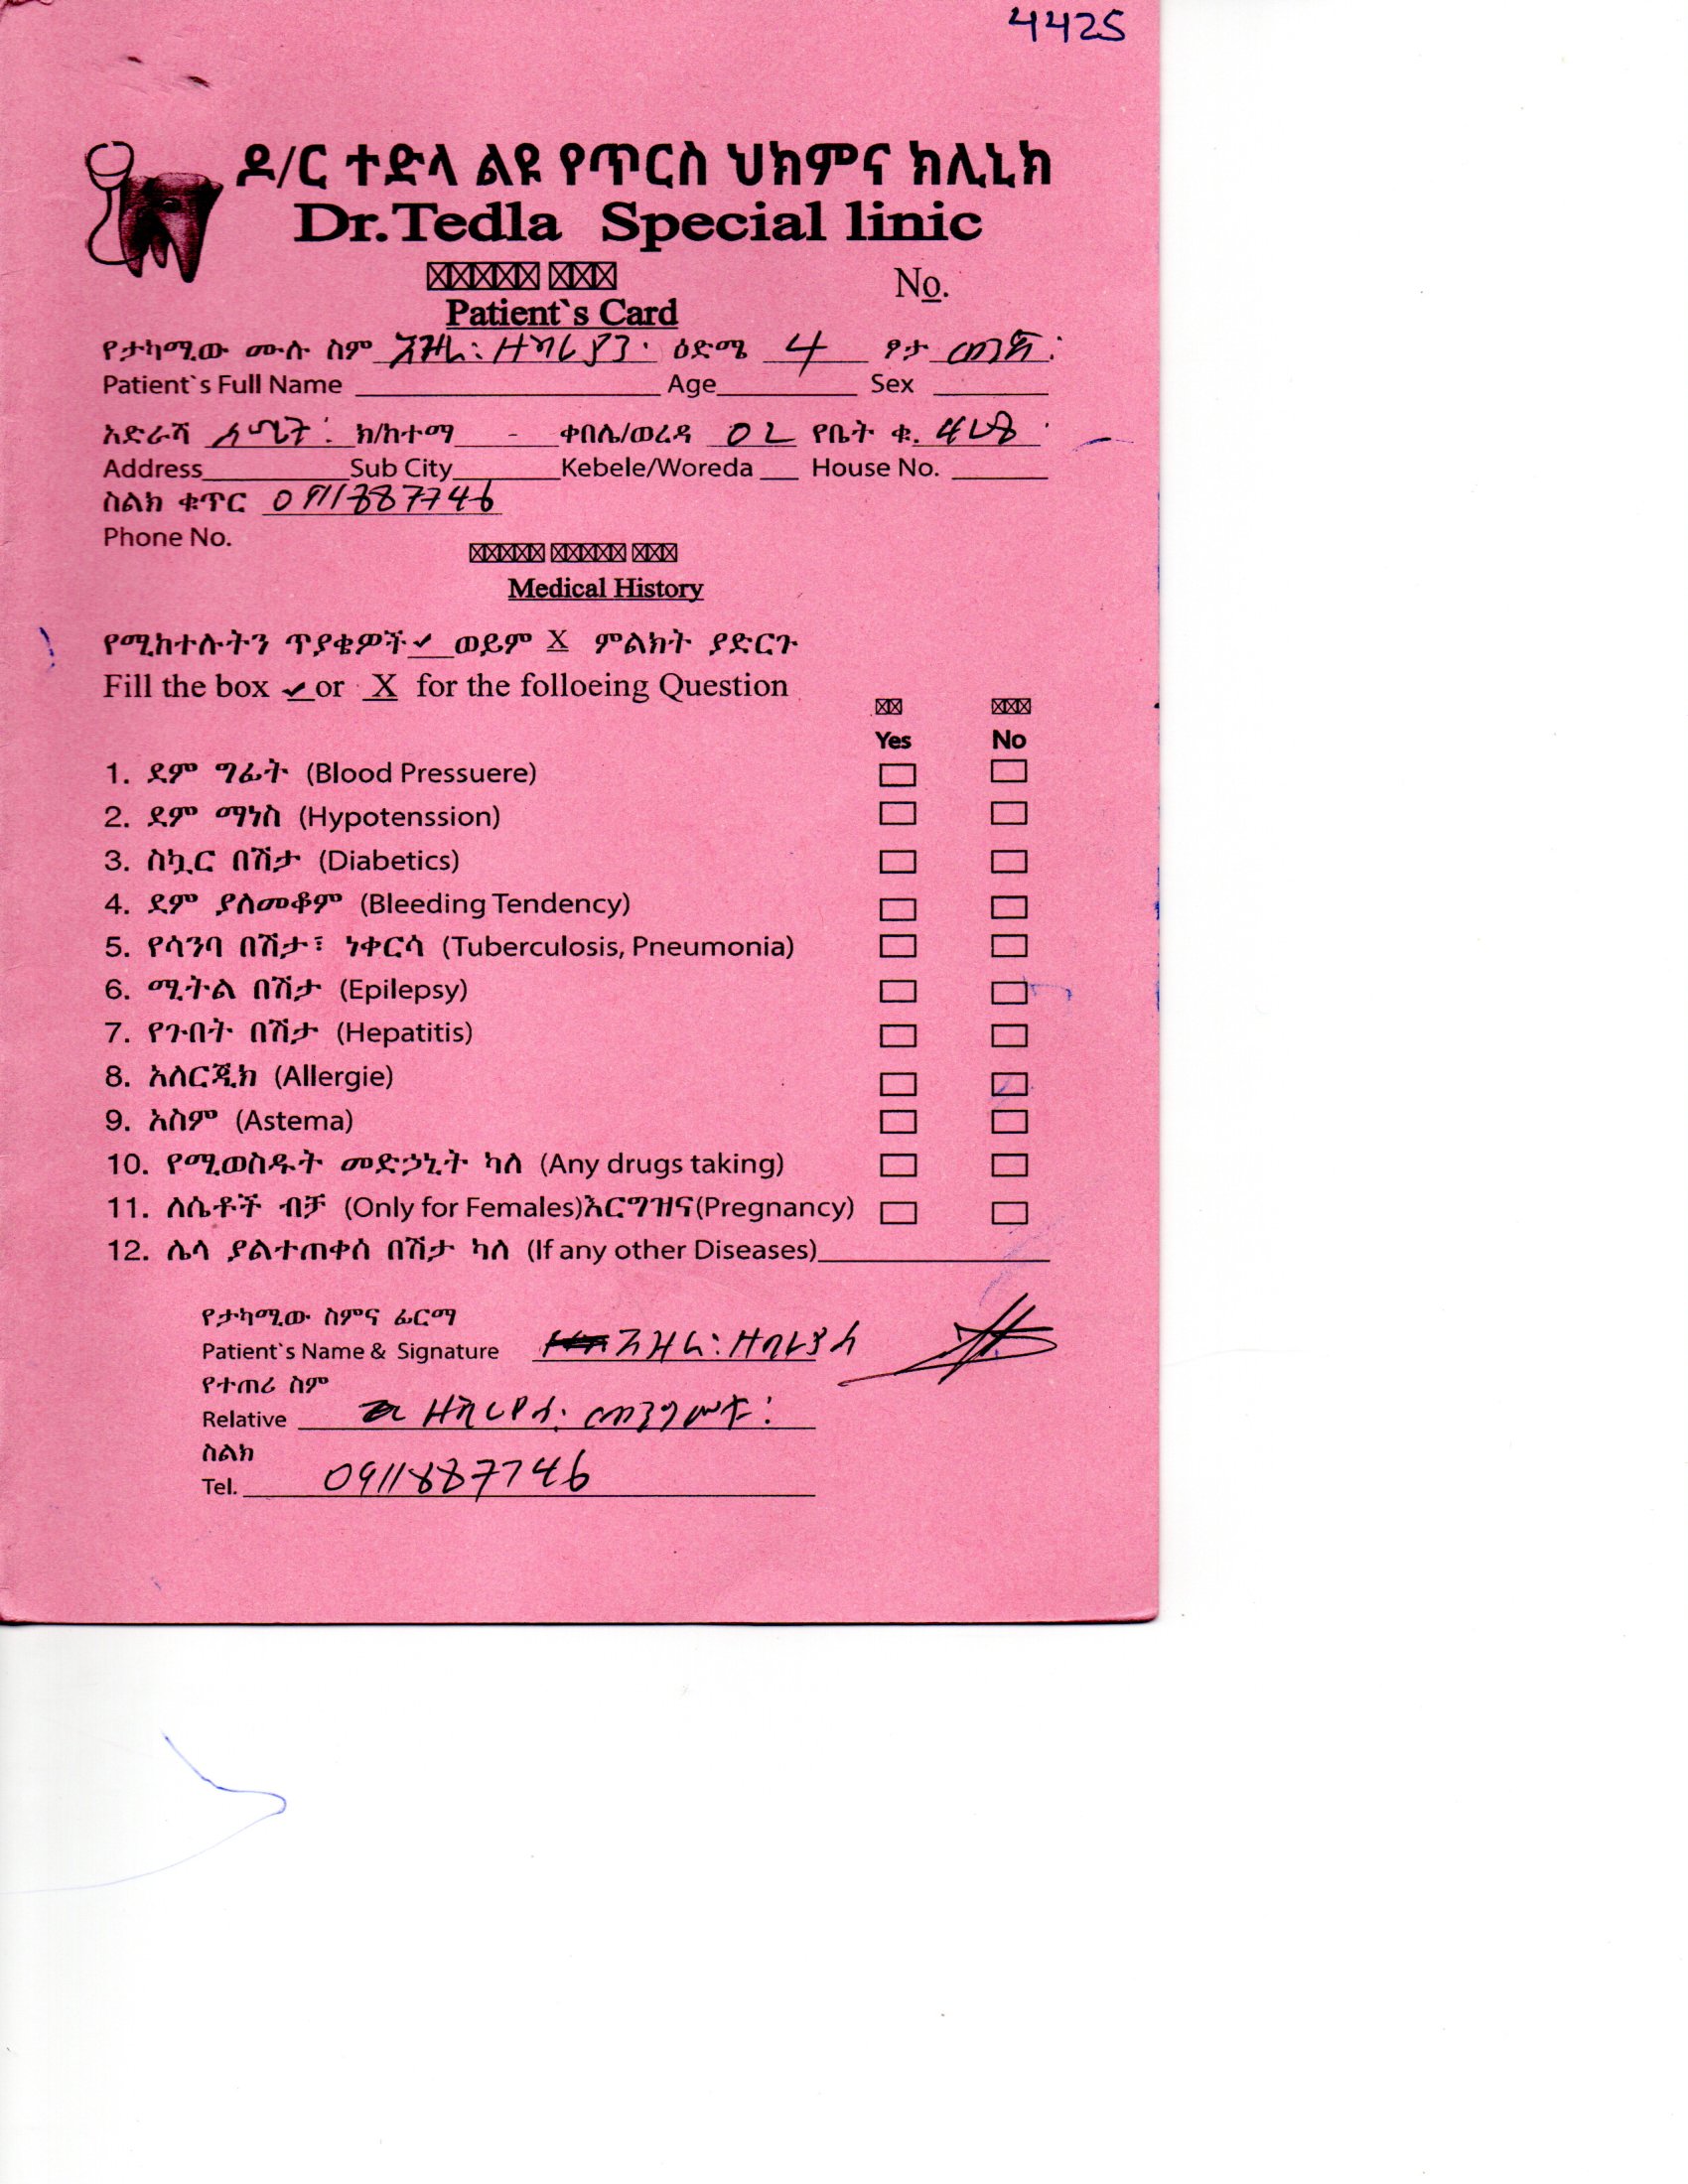 4425
ዶ/ር ተድላ ልዩ የጥርስ ህክምና ክሊኒክ
Dr.Tedla Special linic
No.
Patient`s Card
የታካሚው ሙሉ ስም ዕድሜ 4 ፆታ
Patient`s Full Name Age Sex
አድራሻ ክ/ከተማ - ቀበሌ/ወረዳ 02 የቤት ቁ.
Address Sub City Kebele/Woreda House No.
ስልክ ቁጥር 0911887746
Phone No.
Medical History
የሚከተሉትን ጥያቄዎች ✓ ወይም X ምልክት ያድርጉ
Fill the box ✓ or X for the folloeing Question
Yes No
1. ደም ግፊት (Blood Pressuere)
2. ደም ማነስ (Hypotenssion)
3. ስኳር በሽታ (Diabetics)
4. ደም ያለመቆም (Bleeding Tendency)
5. የሳንባ በሽታ፣ ነቀርሳ (Tuberculosis, Pneumonia)
6. ሚትል በሽታ (Epilepsy)
7. የጉበት በሽታ (Hepatitis)
8. አለርጂክ (Allergie)
9. አስም (Astema)
10. የሚወስዱት መድኃኒት ካለ (Any drugs taking)
11. ለሴቶች ብቻ (Only for Females)እርግዝና(Pregnancy)
12. ሌላ ያልተጠቀሰ በሽታ ካለ (If any other Diseases)
የታካሚው ስምና ፊርማ
Patient`s Name & Signature
የተጠሪ ስም
Relative
ስልክ
Tel. 0911887746